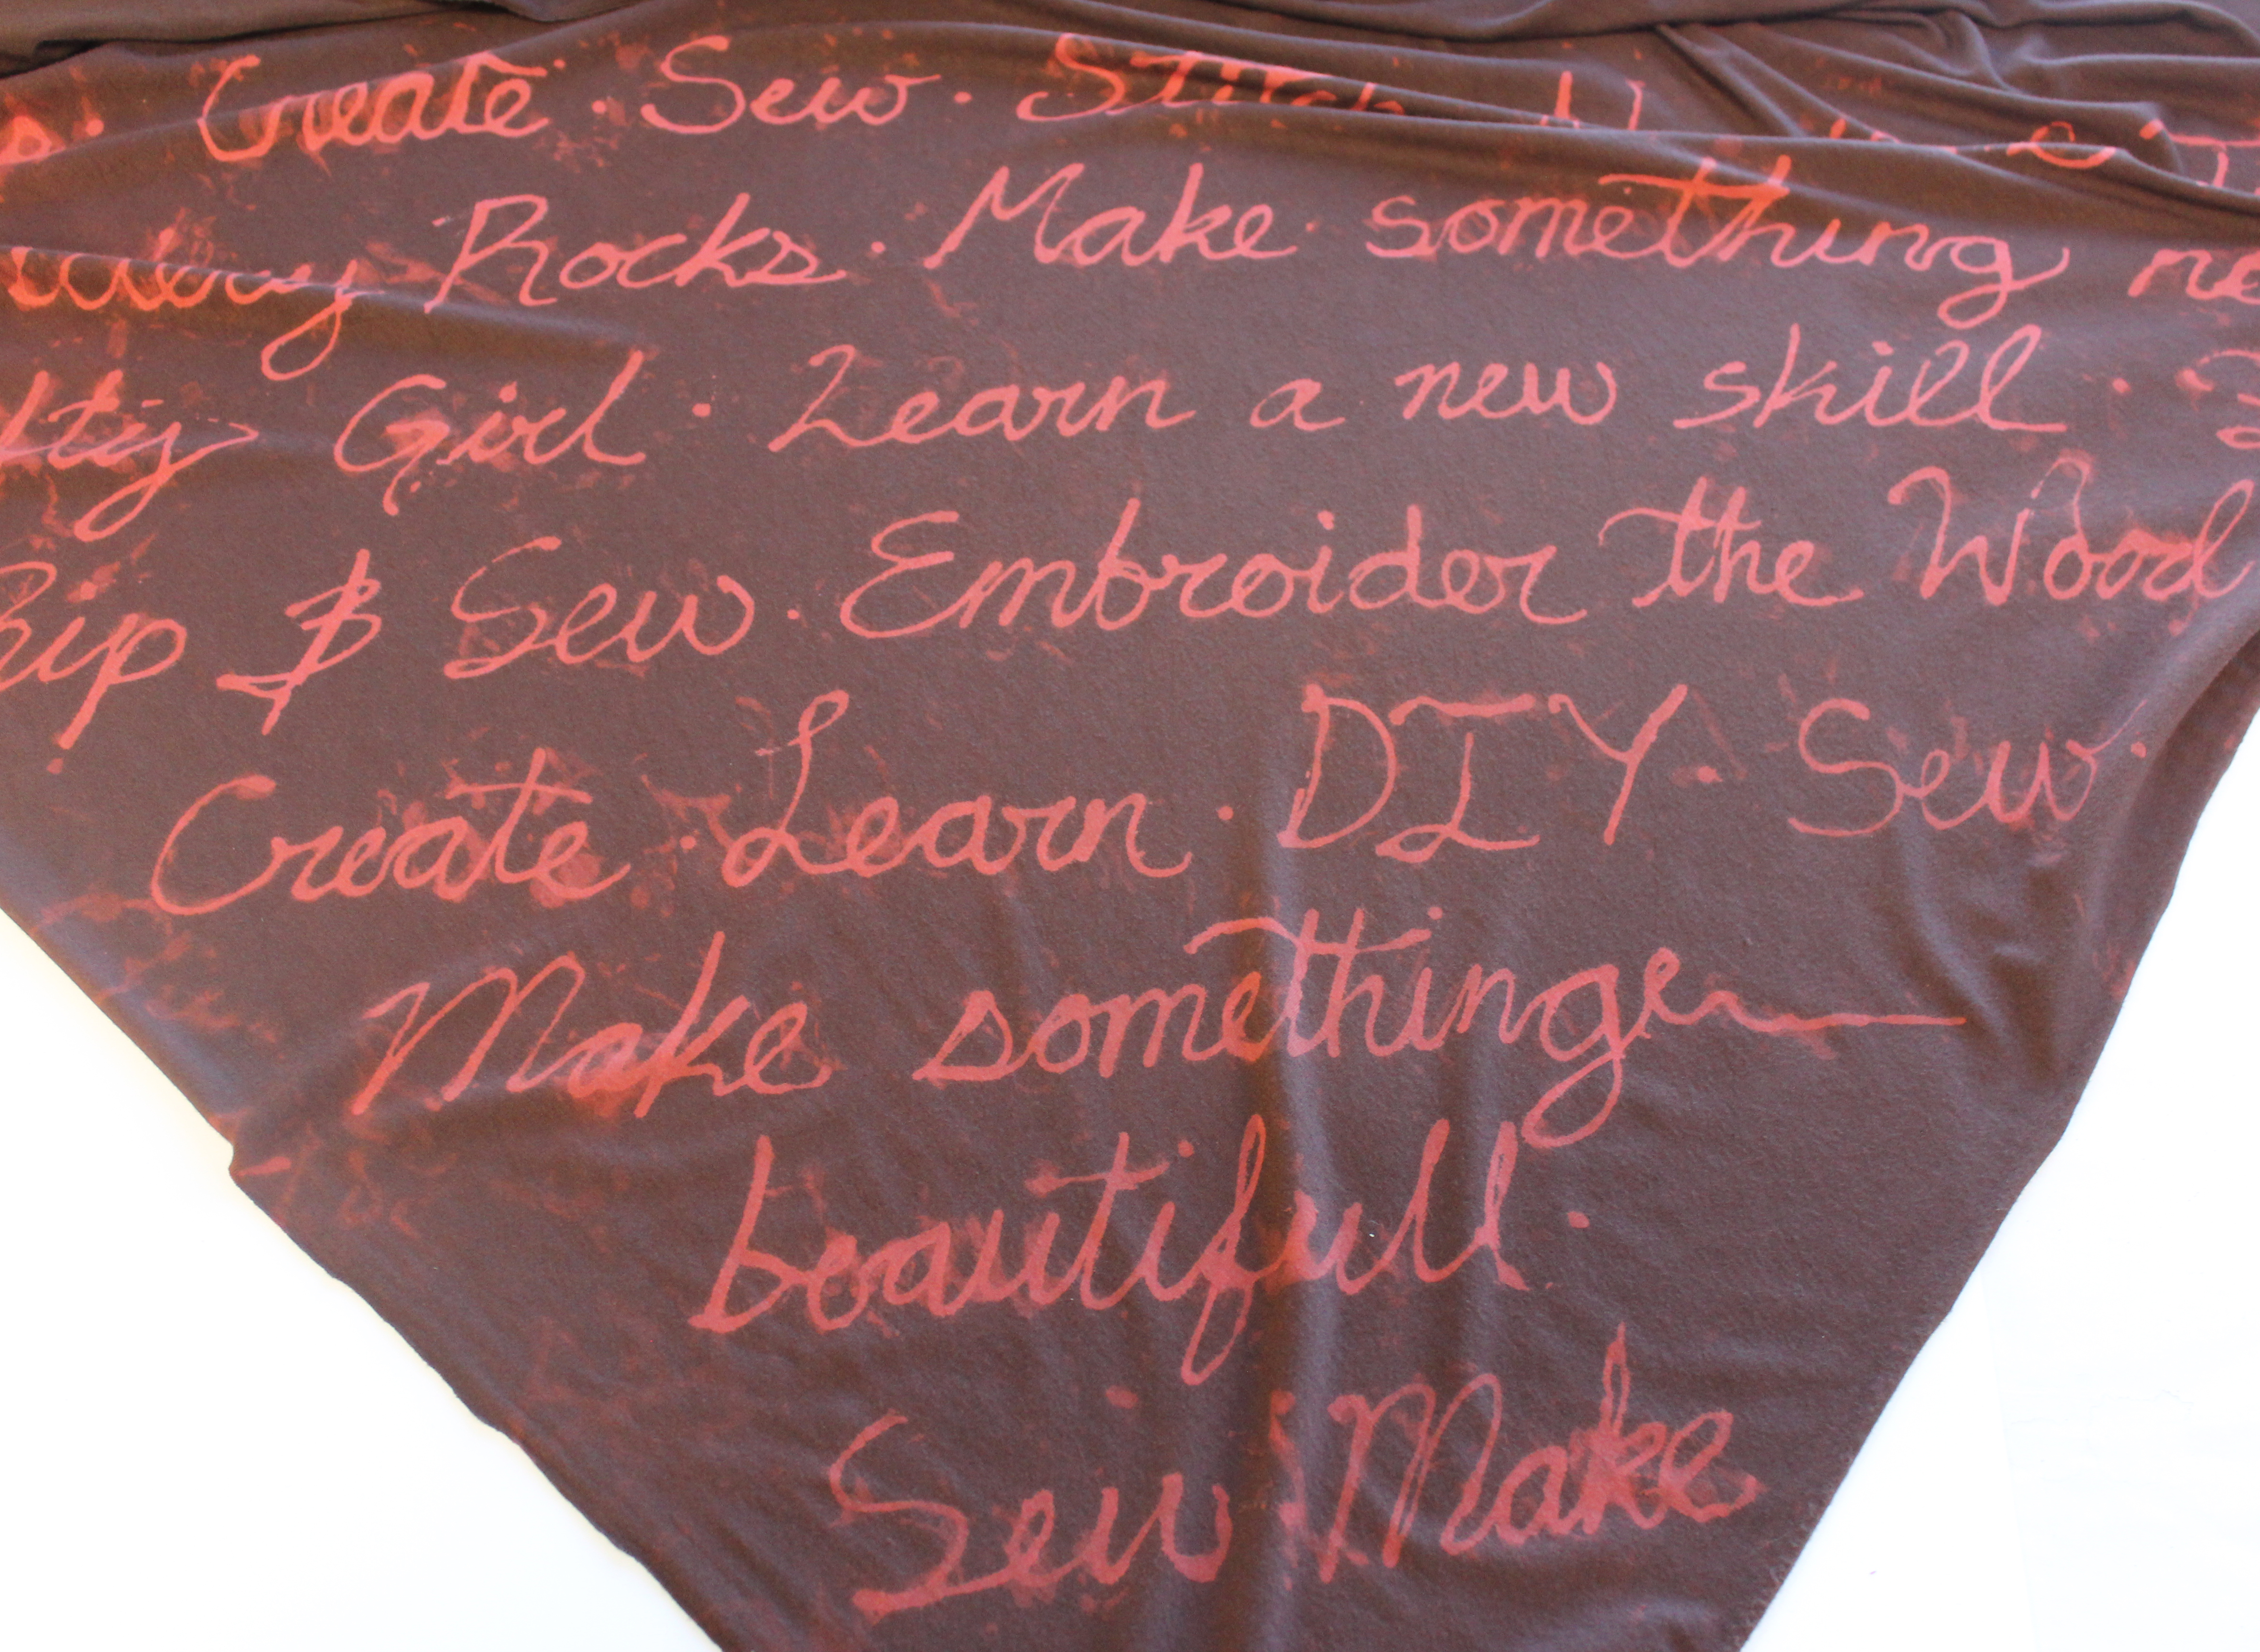 Create · Sew · Stitch
Rocks · Make something
Girl · Learn a new skill ·
& Sew · Embroider the Wood
Create · Learn · DIY · Sew ·
Make something
beautifull ·
Sew · Make